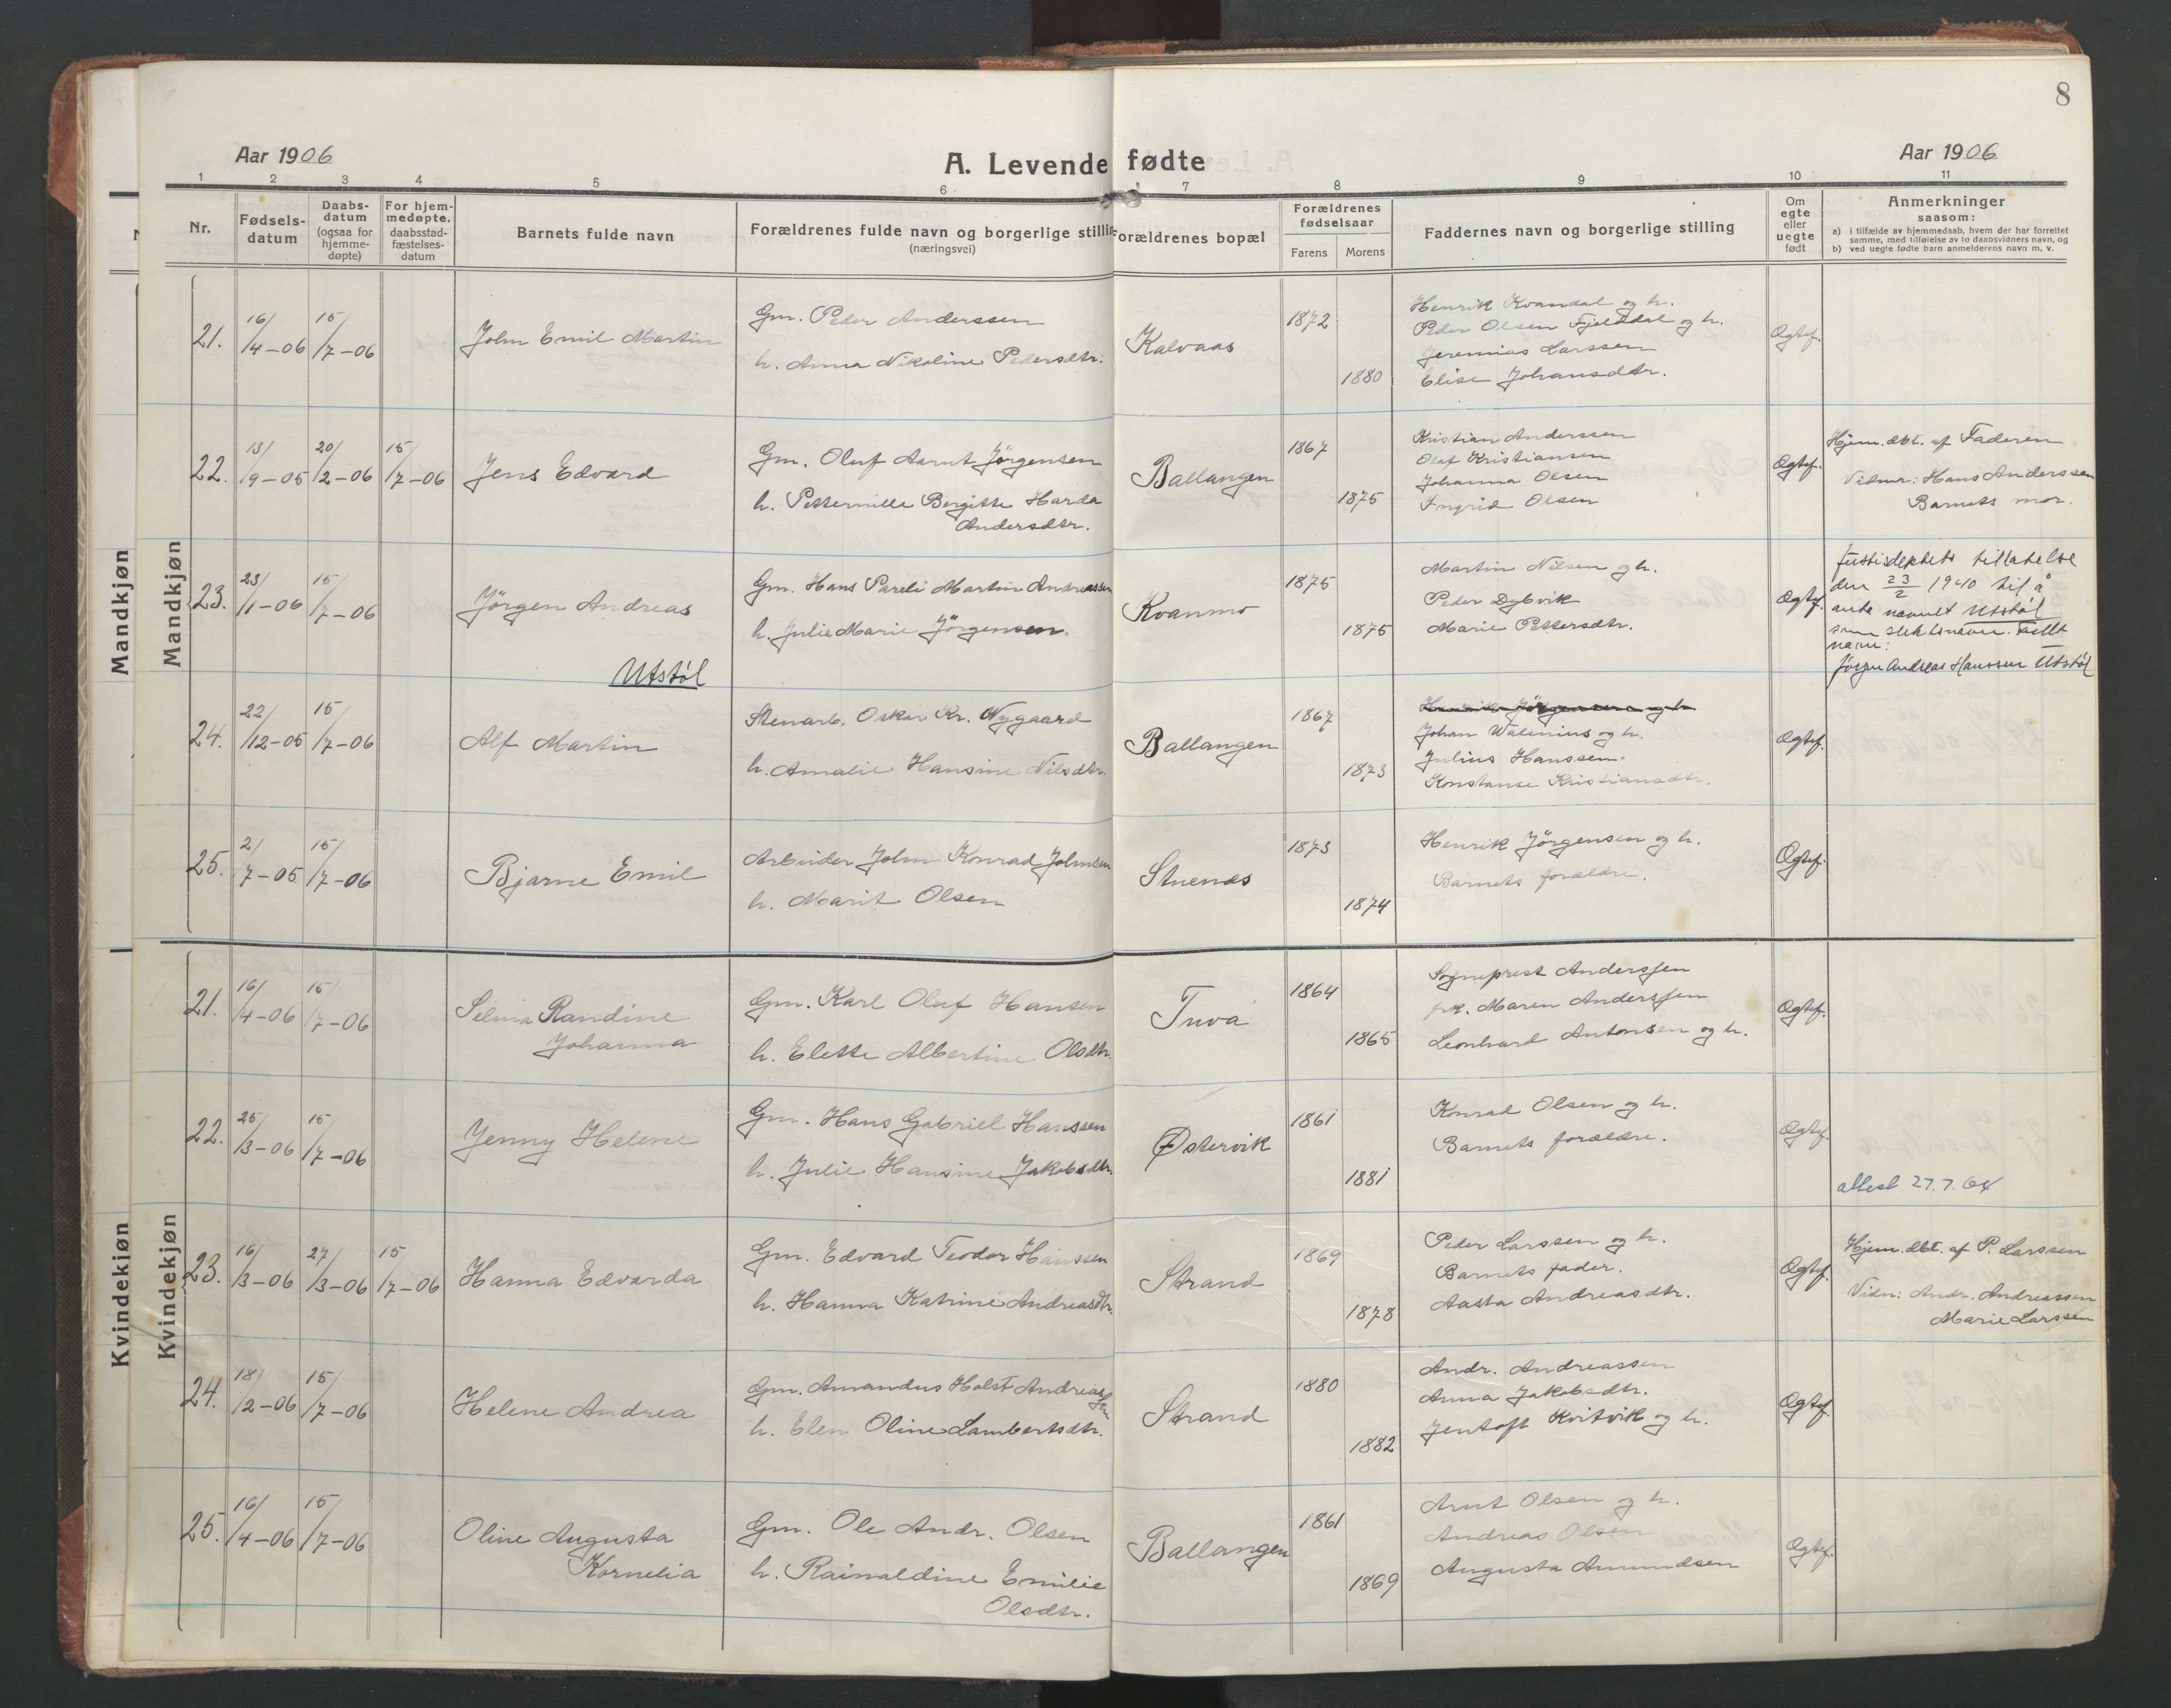 8
Aar 1906
A. Levende fødte
Aar 1906
1 2 3 4 5 6 7 8 9 10 11
Nr.
Fødsels-
datum
Daabs-
datum
(ogsaa for
hjemme-
døpte)
For hjem-
medøpte,
daabsstad-
fæstelses-
datum
Barnets fulde navn
Forældrenes fulde navn og borgerlige stillin
(næringsvei)
orældrenes bopæl
Forældrenes
fødselsaar
Farens
Morens
Faddernes navn og borgerlige stilling
Om
egte
eller
uegte
født
Anmerkninger
saasom:
a) i tilfælde av hjemmedaab, hvem der har forrettet
samme, med tilføielse av to daabsvidners navn, og
b) ved uegte fødte barn anmelderens navn m. v.
Mandkjøn
Mandkjøn
21.
16/4-06
15/7-06
John Emil Martin
Gm. Peder Anderssen
h. Anna Nikoline Pedersdtr.
Kalvaas
1872
1880
Henrik Kvandal og h.
Peder Olsen Fjelddal og h.
Jeremias Larssen
Elise Johansdtr.
Ægtef.
22.
13/9-05
20/2-06
15/7-06
Jens Edvard
Gm. Oluf Aarnt Jörgensen
h. Pettermille Bergitte Harda
Andersdtr.
Ballangen
1867
1875
Kristian Anderssen
Olaf Kristiansen
Johanna Olsen
Ingrid Olsen
Ægtef.
Hjem.dbt. af Faderen
Vidner: Hans Anderssen
Barnets mor.
23.
23/1-06
15/7-06
Jörgen Andreas
Utstøl
Gm. Hans Pareli Martin Andreassen
h. Julie Marie Jörgensen.
Kvanmo
1875
1875
Martin Nilsen og h.
Peder Dybvik
Marie Pettersdtr.
Ægtef.
Justisdeptets tillatelse
den 23/2 1940 til å
anta navnet Utstøl
som slektsnavn. Fullt
navn:
Jörgen Andreas Hanssen Utstøl
24.
22/12-05
15/7-06
Alf Martin
Stenarb. Oskar Kr. Nygaard
h. Amalie Hansine Nilsdtr.
Ballangen
1867
1873
Henrik Jörgensen og h
Johan Walenius og h.
Julius Hanssen.
Konstanse Kristiansdtr.
Ægtef.
25.
2/7-05
15/7-06
Bjarne Emil
Arbeider John Konrad Johnsen
h. Marit Olsen
Stuenes
1873
1874
Henrik Jörgensen og h.
Barnets forældre.
Ægtef.
Kvindekjøn
Kvindekjøn
21.
16/4-06
15/7-06
Selma Randine
Johanna
Gm. Karl Oluf Hansen
h. Elette Albertine Olsdtr.
Tuva
1864
1865
Sogneprest Anderssen
frk. Maren Anderssen
Leonhard Antonsen og h.
Ægtef.
22.
25/3-06
15/7-06
Jenny Helene
Gm. Hans Gabriel Hanssen
h. Julie Hansine Jakobsdtr.
Østervik
1861
1881
Konrad Olsen og h.
Barnets forældre.
Ægtef.
attest 27.7.64
23.
16/3-06
27/3-06
15/7-06
Hanna Edvarda
Gm. Edvard Teodor Hanssen
h. Hanna Katrine Andreasdtr.
Strand
1869
1878
Peder Larssen og h.
Barnets fader.
Aasta Andreasdtr.
Ægtef.
Hjem.dbt. af P. Larssen
Vidn: Andr. Andreassen
Marie Larssen
24.
18/2-06
15/7-06
Helene Andrea
Gm. Amandus Holst Andreassen
h. Elen Oline Lambertsdtr.
Strand
1880
1882
Andr. Andreassen
Anna Jakobsdtr.
Jentoft Kvitvik og h.
Ægtef.
25.
16/4-06
15/7-06
Oline Augusta
Kornelia
Gm. Ole Andr. Olsen
h. Rainaldine Emilie
Olsdtr.
Ballangen
1861
1869
Arnt Olsen og h.
Andreas Olsen
Augusta Amundsen
Ægtef.